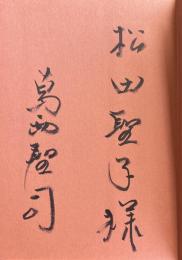 松田聖子様
葛西聖司